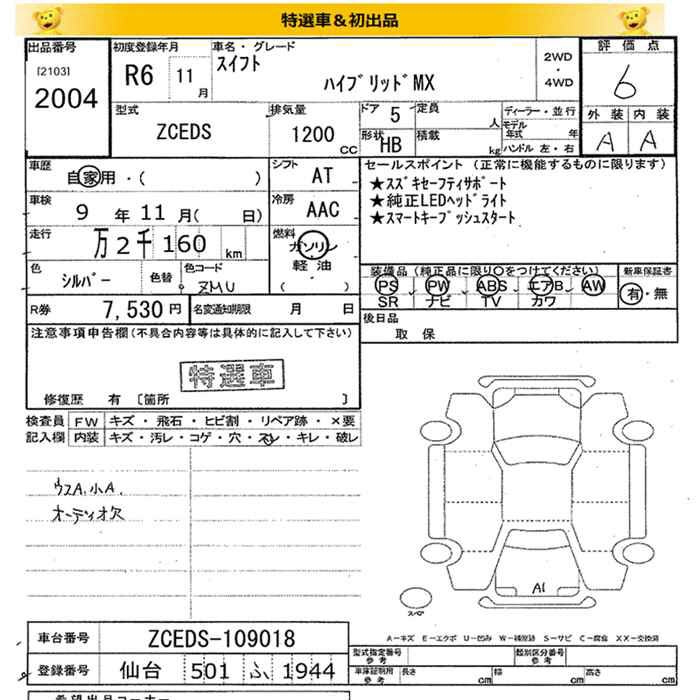 特選車&初出品
出品番号
[2103]
2004
初度登録年月
R6 11 月
車名・グレード
スイフト
ハイブリッドMX
2WD
・
4WD
評価点
6
外装 内装
A A
型式
ZCEDS
排気量
1200 CC
ドア 5
形状 HB
定員 人
積載 kg
ディーラー・並行
モデル年式 年
ハンドル 左・右
車歴
自家用・( )
車検
9 年 11 月( 日)
走行
万 2 千 160 km
色
シルバー
色替
色コード
ZMU
シフト
AT
冷房
AAC
燃料
ガソリン
軽油
( )
セールスポイント (正常に機能するものに限ります)
★スズキセーフティサポート
★純正LEDヘッドライト
★スマートキープッシュスタート
装備品(純正品に限り〇をつけてください)
PS PW ABS エアB AW
SR ナビ TV カワ
新車保証書
有・無
R券 7,530 円
名変通知期限 月 日
後日品
取 保
注意事項申告欄(不具合内容等は具体的に記入して下さい)
特選車
修復歴 有 [箇所 ]
検査員記入欄
FW キズ・飛石・ヒビ割・リペア跡・×要
内装 キズ・汚レ・コゲ・穴・スレ・キレ・破レ
ウスA,小A,
オーディオ欠
A1
スペア
A-キズ E-エクボ U-凹み W-補修跡 S-サビ C-腐食 XX-交換済
車台番号 ZCEDS-109018
登録番号 仙台 501 ふ 1944
型式指定番号 参考
類別区分番号 参考
車庫証明用 参考 長さ cm 幅 cm 高さ cm
希望出品コーナー